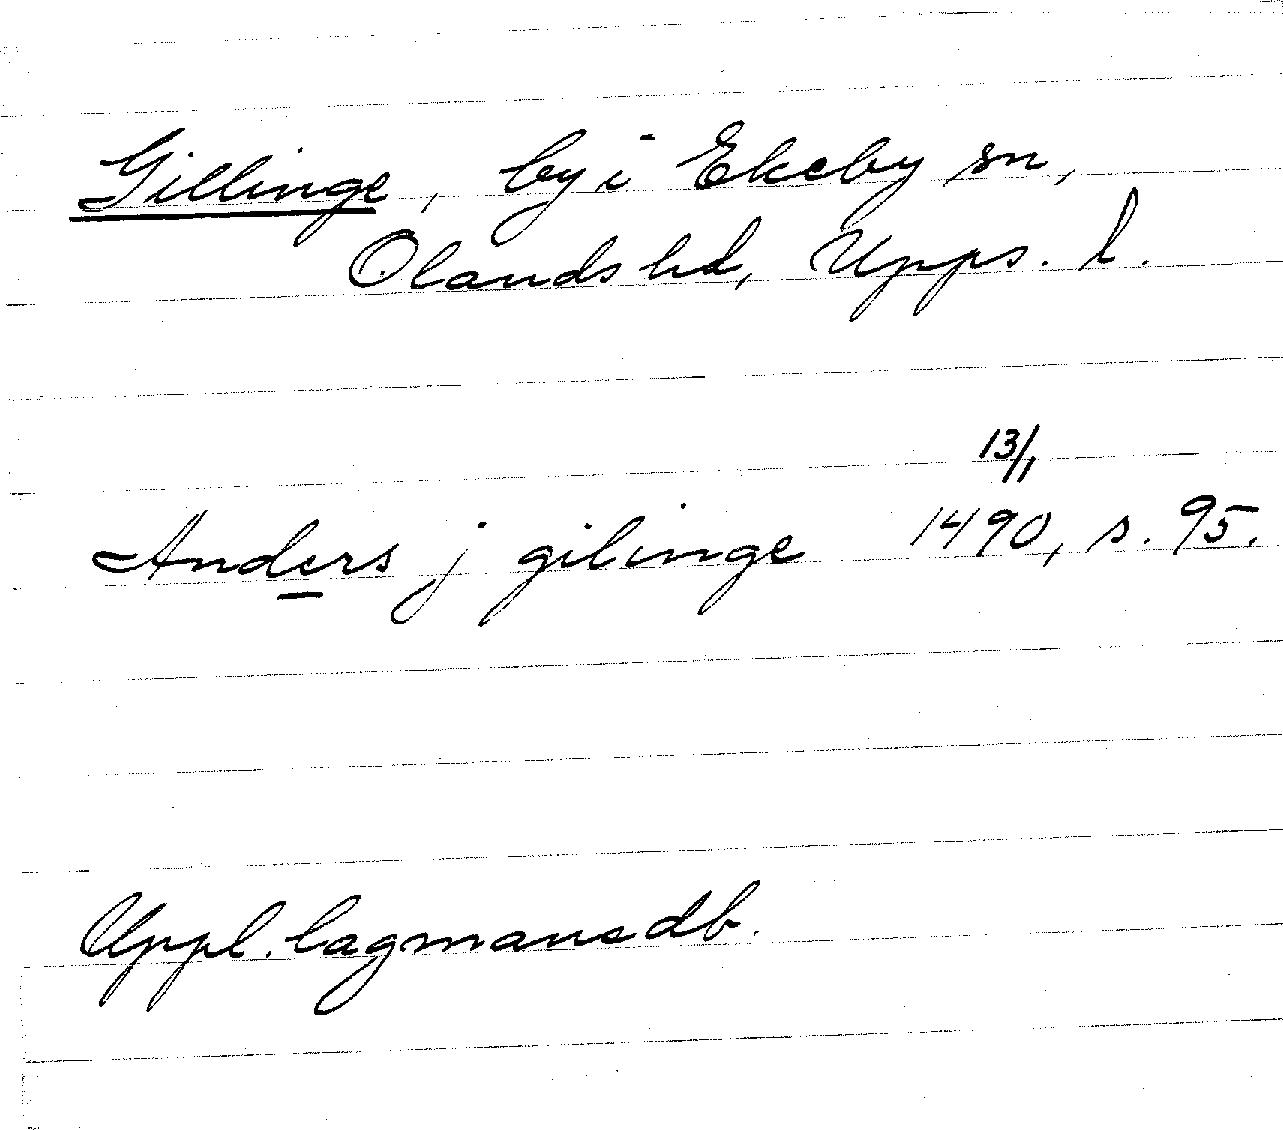 Gillinge, by i Ekeby sn,
Olands hd, Upps. l.
13/1
Anders j gilinge 1490, s. 95.
Uppl. lagmansdb.